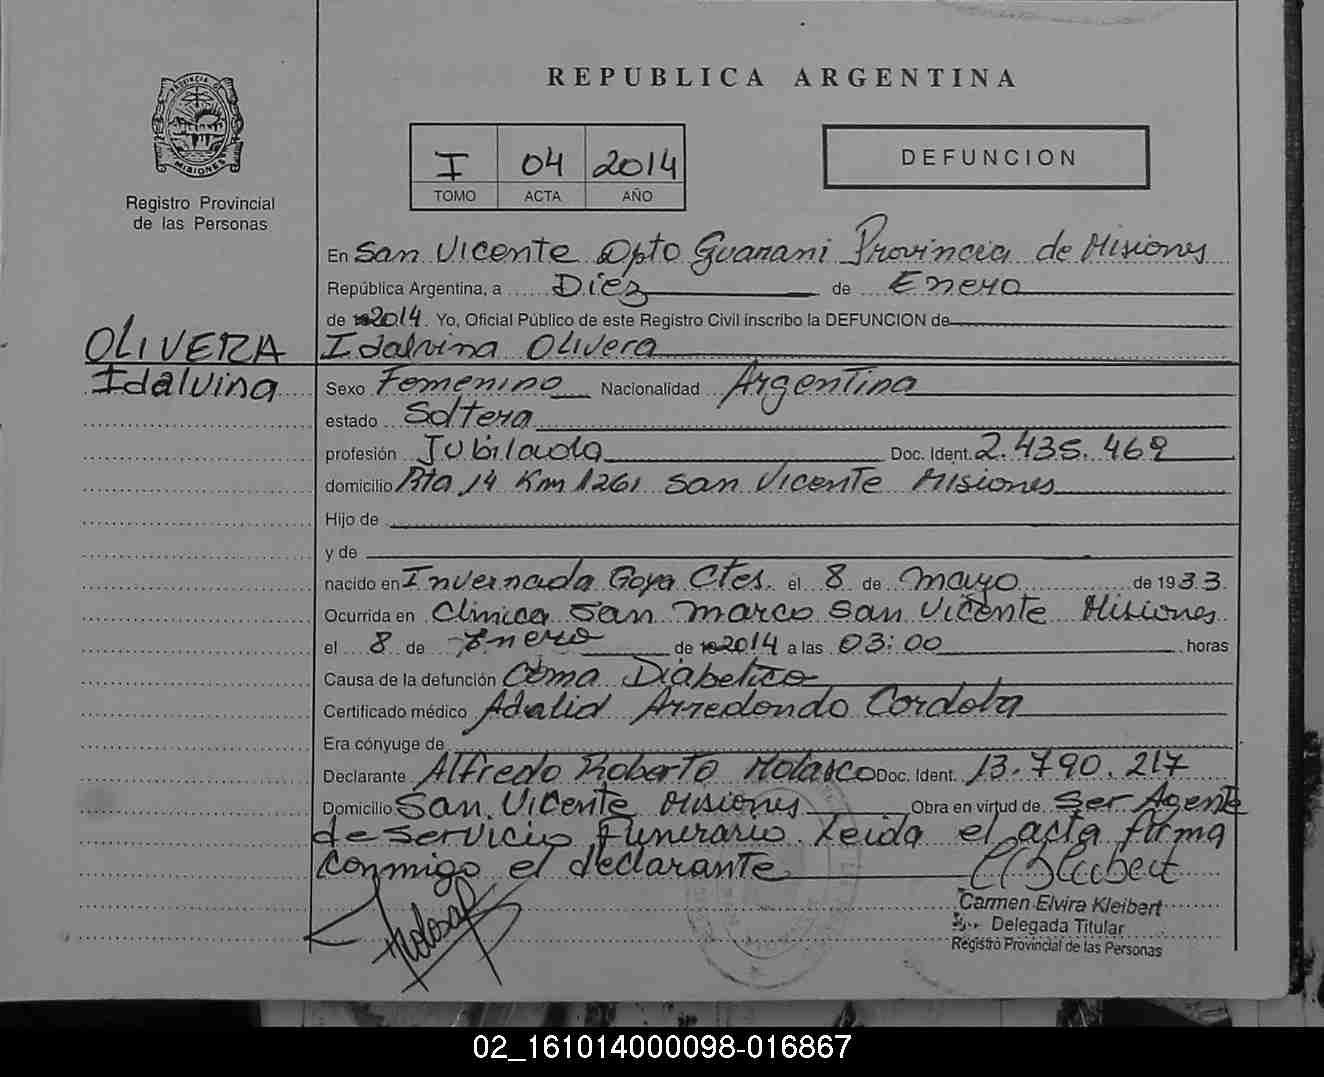 REPUBLICA ARGENTINA
PROVINCIA DE
MISIONES
Registro Provincial
de las Personas
I 04 2014
TOMO ACTA AÑO
DEFUNCION
En San Vicente Dpto Guarani Provincia de Misiones
República Argentina, a Diez de Enero
de 2014. Yo, Oficial Público de este Registro Civil inscribo la DEFUNCION de
OLIVERA
Idalvina
Idalvina Olivera
Sexo Femenino Nacionalidad Argentina
estado Soltera
profesión Jubilada Doc. Ident. 2.435.469
domicilio Rta 14 Km 1261 San Vicente Misiones
Hijo de
y de
nacido en Invernada Goya Ctes. el 8 de mayo de 1933
Ocurrida en Clinica San Marco San Vicente Misiones
el 8 de Enero de 2014 a las 03:00 horas
Causa de la defunción Coma Diabetico
Certificado médico Adalid Arredondo Cordoba
Era cónyuge de
Declarante Alfredo Roberto Molasco Doc. Ident. 13.790.217
Domicilio San Vicente Misiones Obra en virtud de Ser Agente
de servicio Funerario. Leida el acta firma
conmigo el declarante
Carmen Elvira Kleibert
Delegada Titular
Registro Provincial de las Personas
02_161014000098-016867